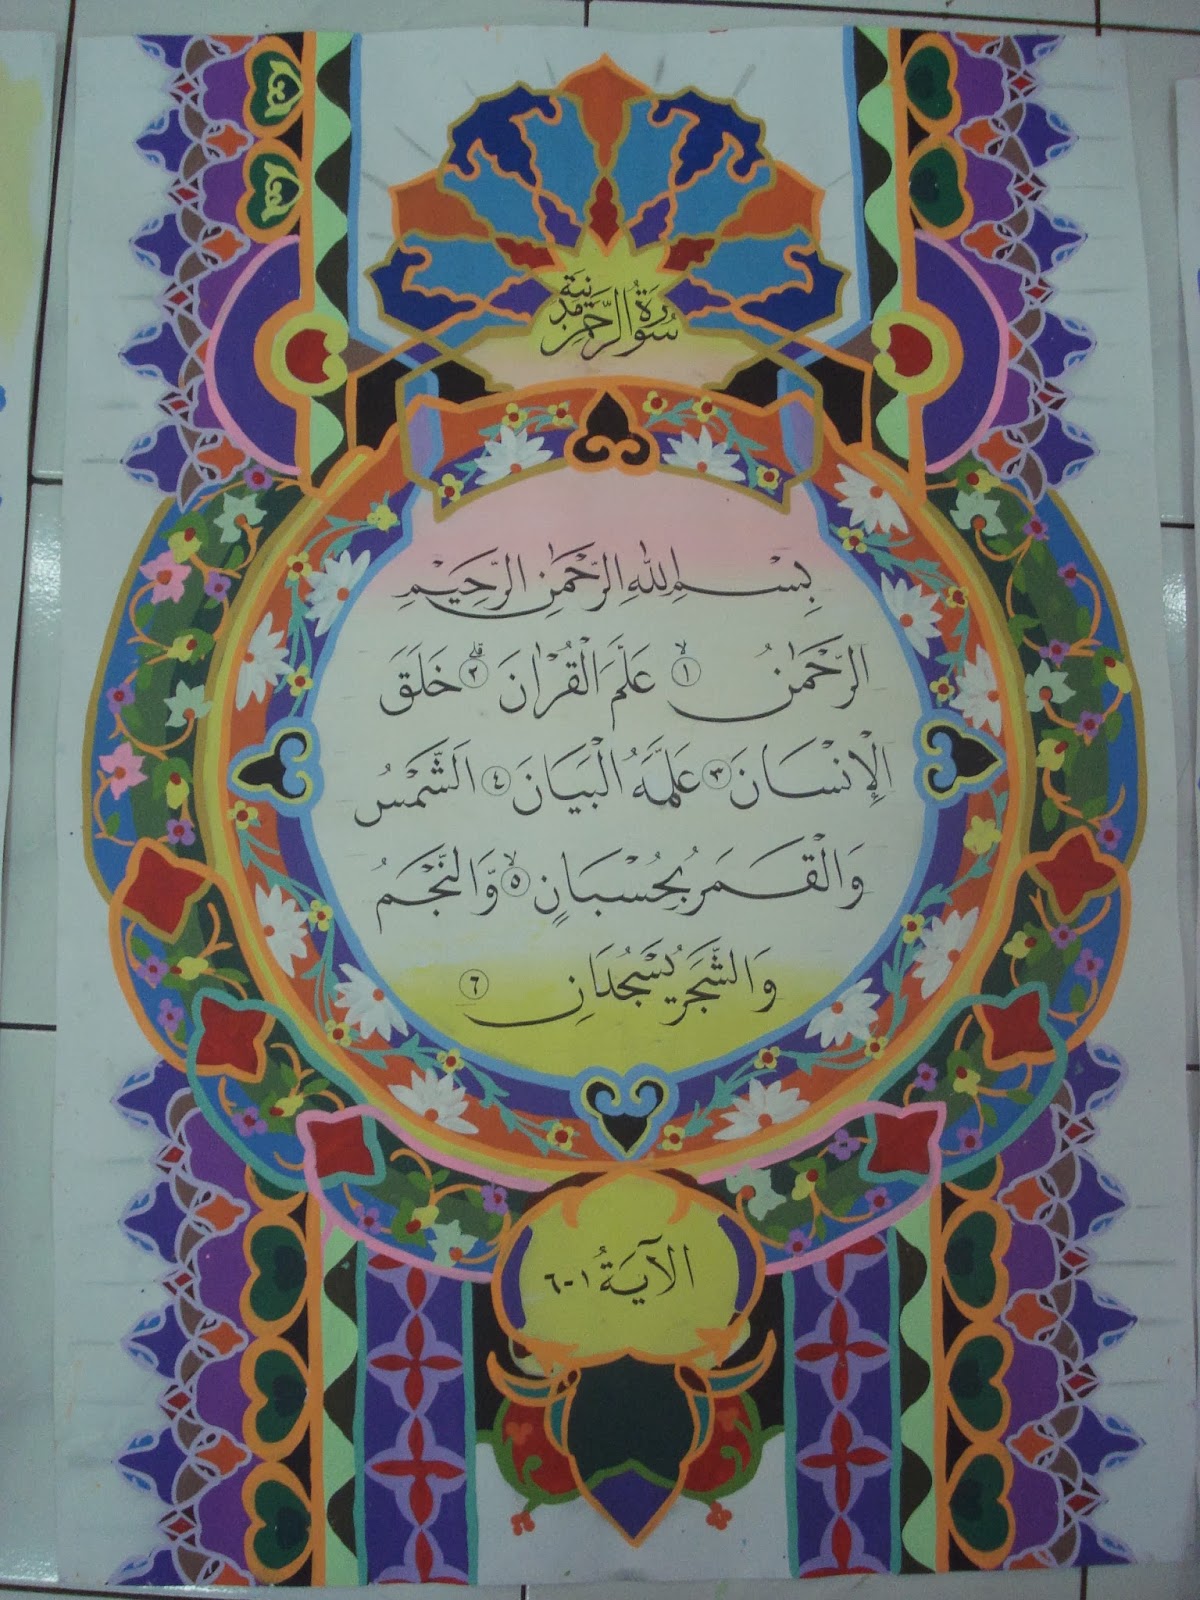 سُوْرَةُ الرَّحْمٰنِ مَدَنِيَّة
بِسْمِ اللهِ الرَّحْمٰنِ الرَّحِيْمِ
الرَّحْمٰنُ ۙ﴿١﴾ عَلَّمَ الْقُرْاٰنَ ۗ﴿٢﴾ خَلَقَ
الْاِنْسَانَ ﴿٣﴾ عَلَّمَهُ الْبَيَانَ ﴿٤﴾ اَلشَّمْسُ
وَالْقَمَرُ بِحُسْبَانٍ ۙ﴿٥﴾ وَّالنَّجْمُ
وَالشَّجَرُ يَسْجُدَانِ ﴿٦﴾
الآيَةُ ١-٦